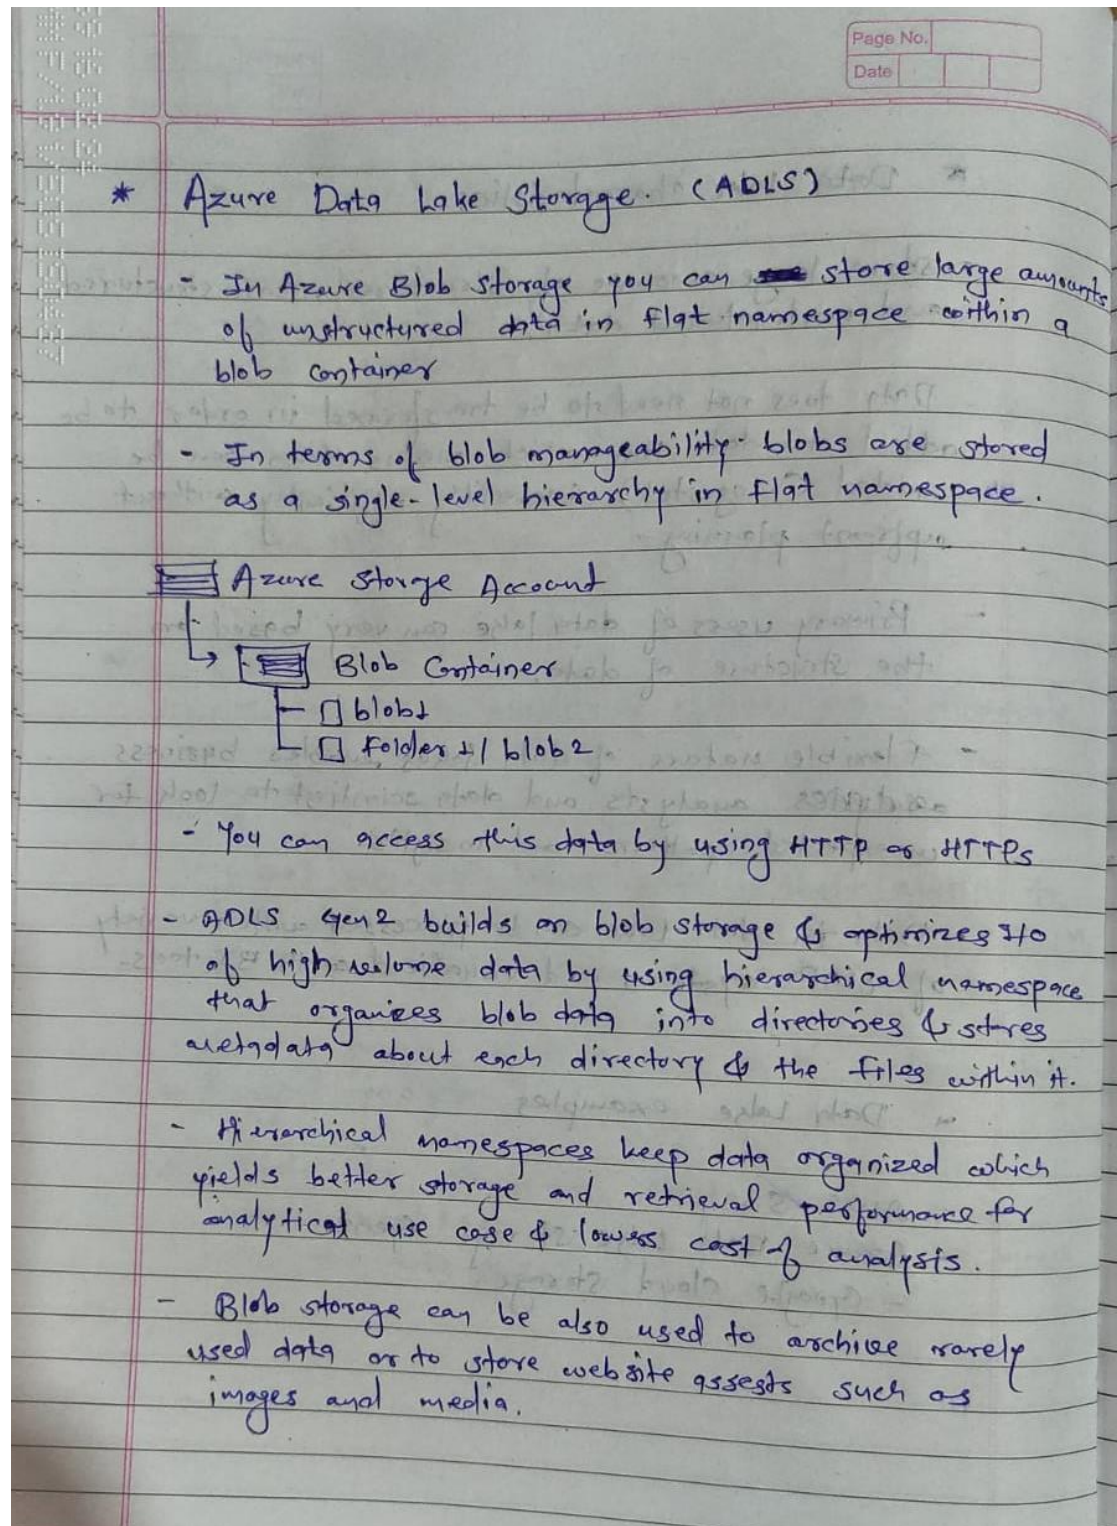 Page No.
Date
* Azure Data Lake Storage. (ADLS)
- In Azure Blob storage you can store large amounts
of unstructured data in flat namespace within a
blob container
- In terms of blob manageability blobs are stored
as a single-level hierarchy in flat namespace.
Azure Storge Account
Blob Container
blob1
Folder 1/ blob2
- You can access this data by using HTTP or HTTPs
- ADLS Gen2 builds on blob storage & optimizes I/O
of high volume data by using hierarchical namespace
that organizes blob data into directories & stores
metadata about each directory & the files within it.
- Hierarchical namespaces keep data organized which
yields better storage and retrieval performance for
analytical use case & lowers cost of analysis.
- Blob storage can be also used to archive rarely
used data or to store website assests such as
images and media.